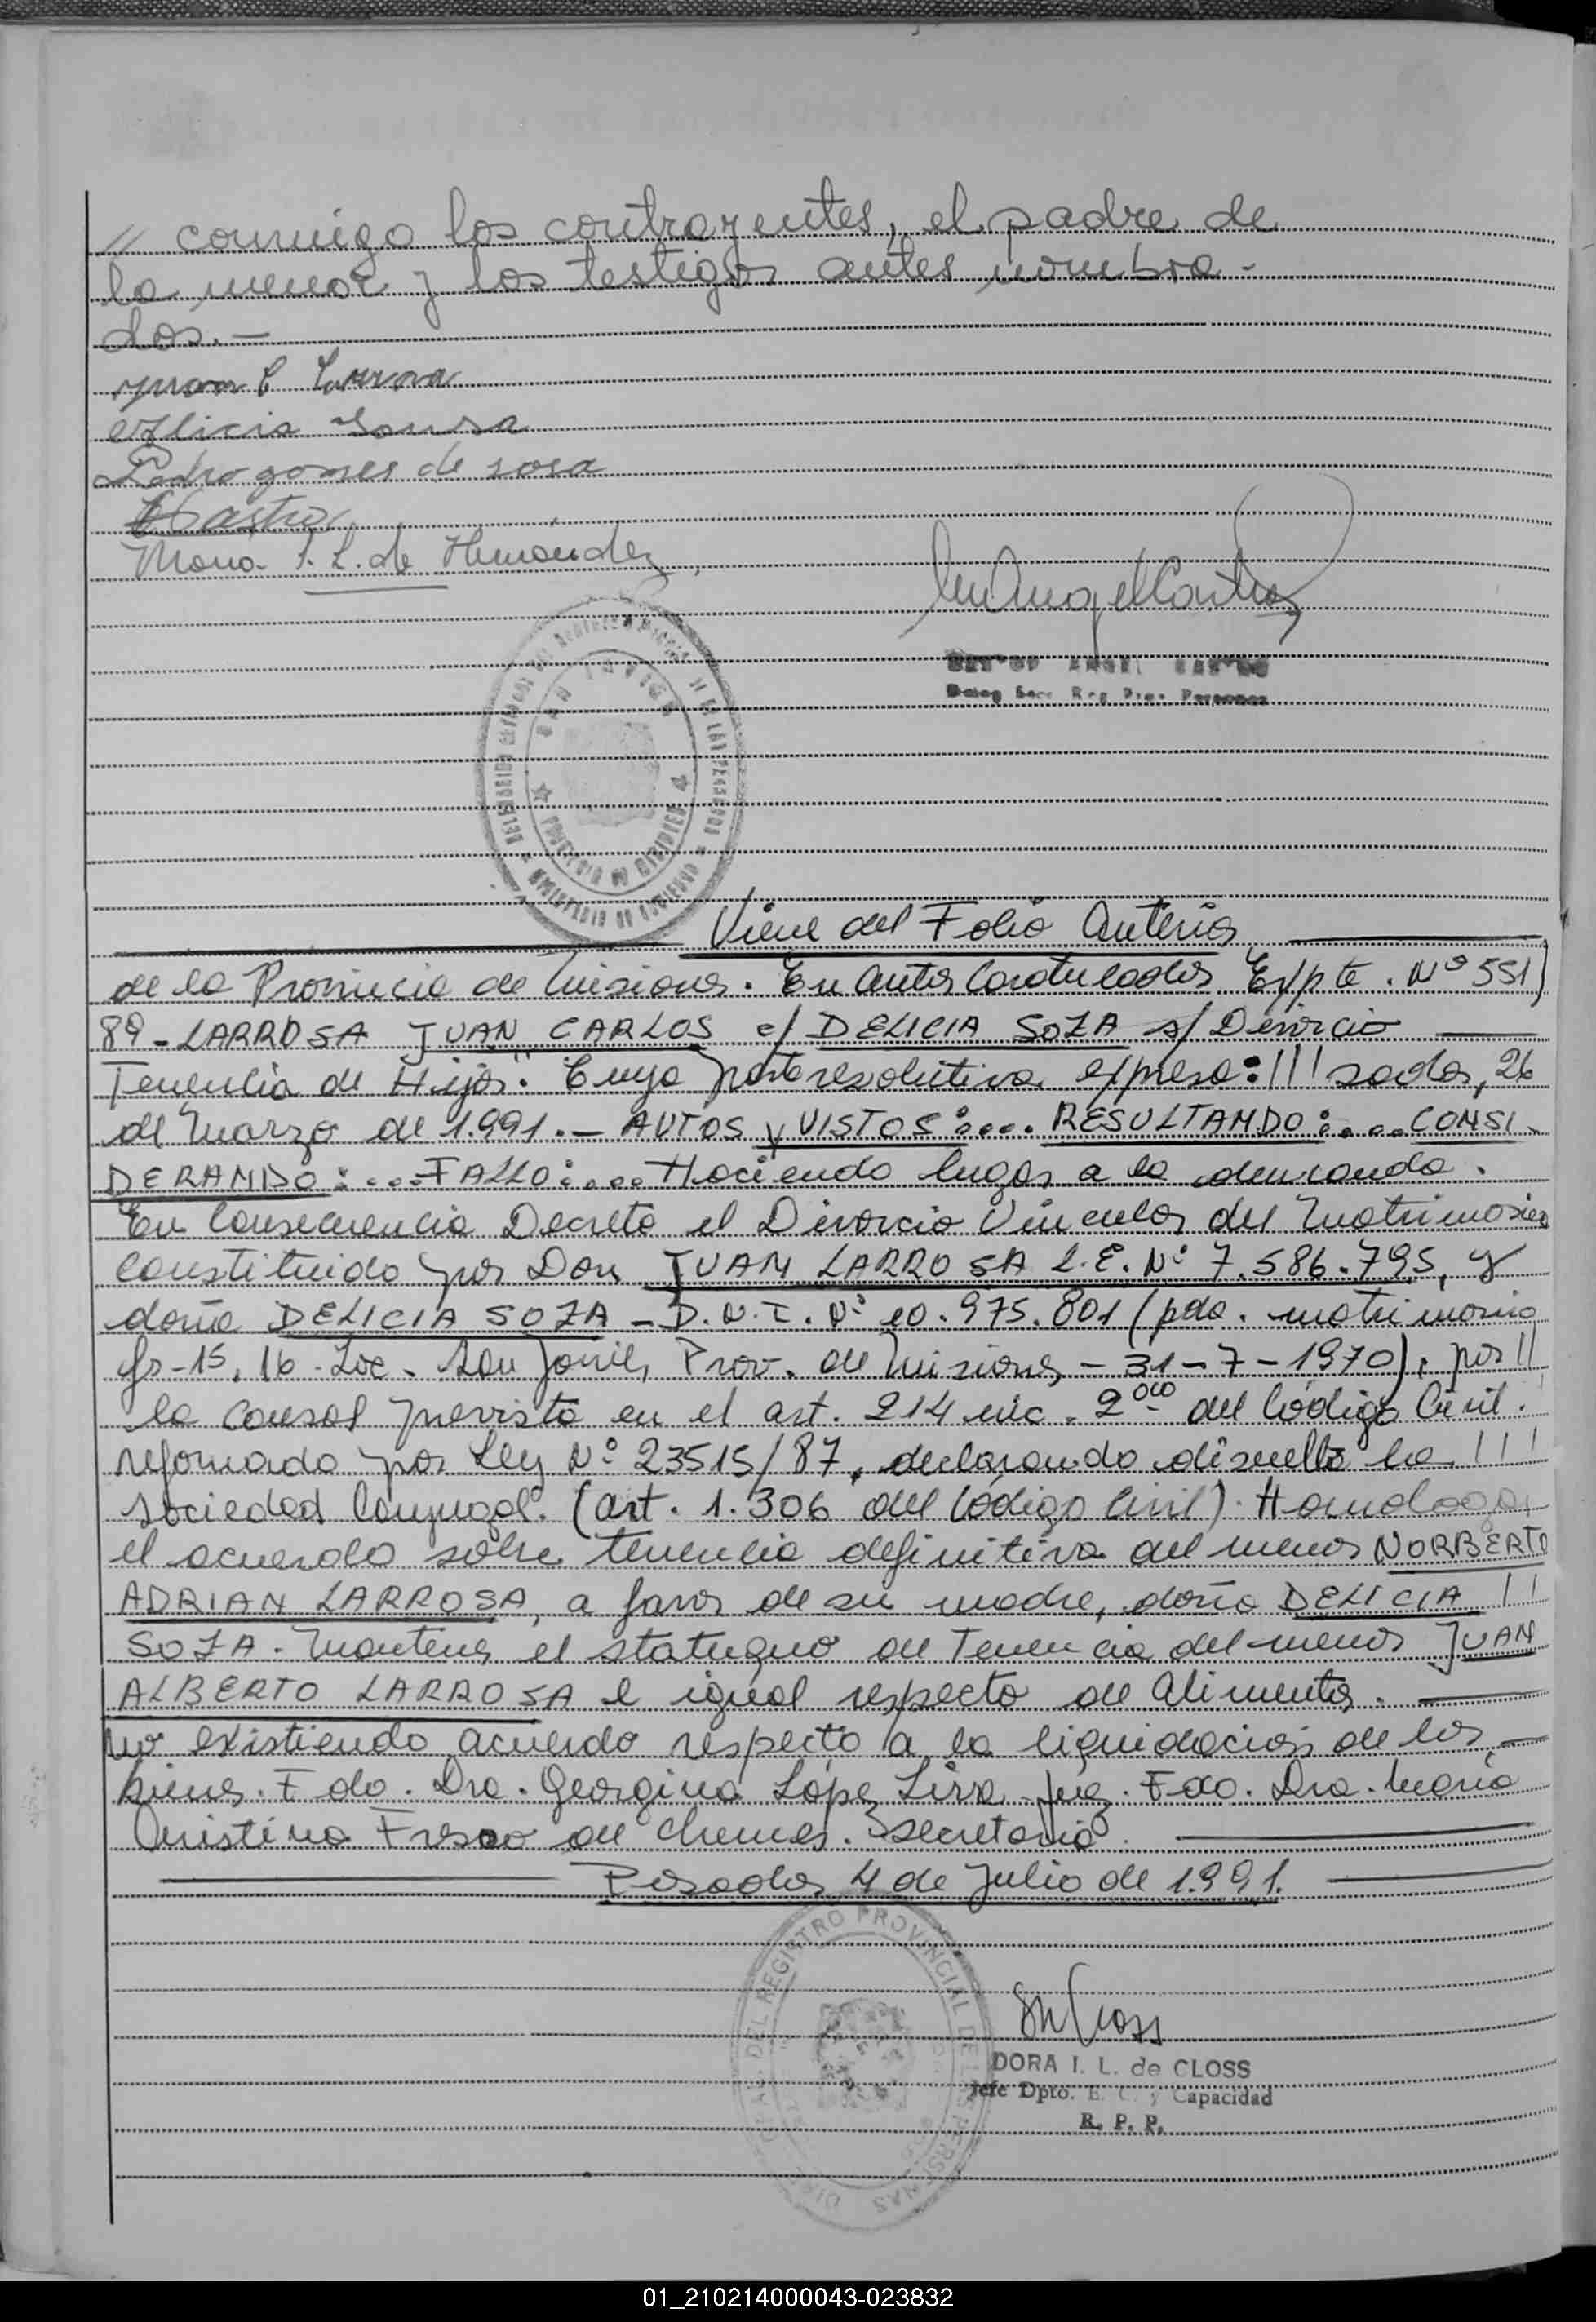 // conmigo los contrayentes, el padre de
la menor y los testigos antes nombra-
dos.-
Juan C Larrosa
Pedro gomes de sosa
Castro
Maria I. L. de Hernández
Deleg Secc Reg Prov Personas
Viene del Folio Anterior
de la Provincia de Misiones. En Autos Caratulados Expte. Nº 551/
89 - LARROSA JUAN CARLOS c/ DELICIA SOZA s/ Divorcio
Tenencia de Hijos". Cuya parte resolutiva expresa: /// sadas, 26
de Marzo de 1.991.- AUTOS y VISTOS:.... RESULTANDO:.... CONSI
DERANDO:....FALLO:.... Haciendo lugar a la demanda.
En Consecuencia Decreto el Divorcio Vincular del Matrimonio
Constituido por Don JUAN LARROSA L.E. Nº 7.586.795, y
doña DELICIA SOZA - D.N.I. Nº 10.975.801 (pda. matrimonio
fs-15, 16- Loc. San Javier, Prov. de Misiones - 31-7-1970), por //
la causal prevista en el art. 214 inc. 2do del Código Civil.
reformado por Ley Nº 23515/87, declarando disuelta la ///
Sociedad Conyugal. (art. 1.306 del Código Civil). Homologar
el acuerdo sobre tenencia definitiva del menor NORBERTO
ADRIAN LARROSA, a favor de su madre, doña DELICIA //
SOZA. Mantener el statuquo de Tenencia del menor JUAN
ALBERTO LARROSA e igual respecto de Alimentos.
No existiendo acuerdo respecto a la liquidación de los
bienes. Fdo. Dra. Georgina López Liva Juez. Fdo. Dra. María
Cristina Fresco de Chemes. Secretaria.
Posadas 4 de Julio de 1.991.
DORA I. L. de CLOSS
Jefe Dpto. E. C. y Capacidad
R. P. P.
01_210214000043-023832